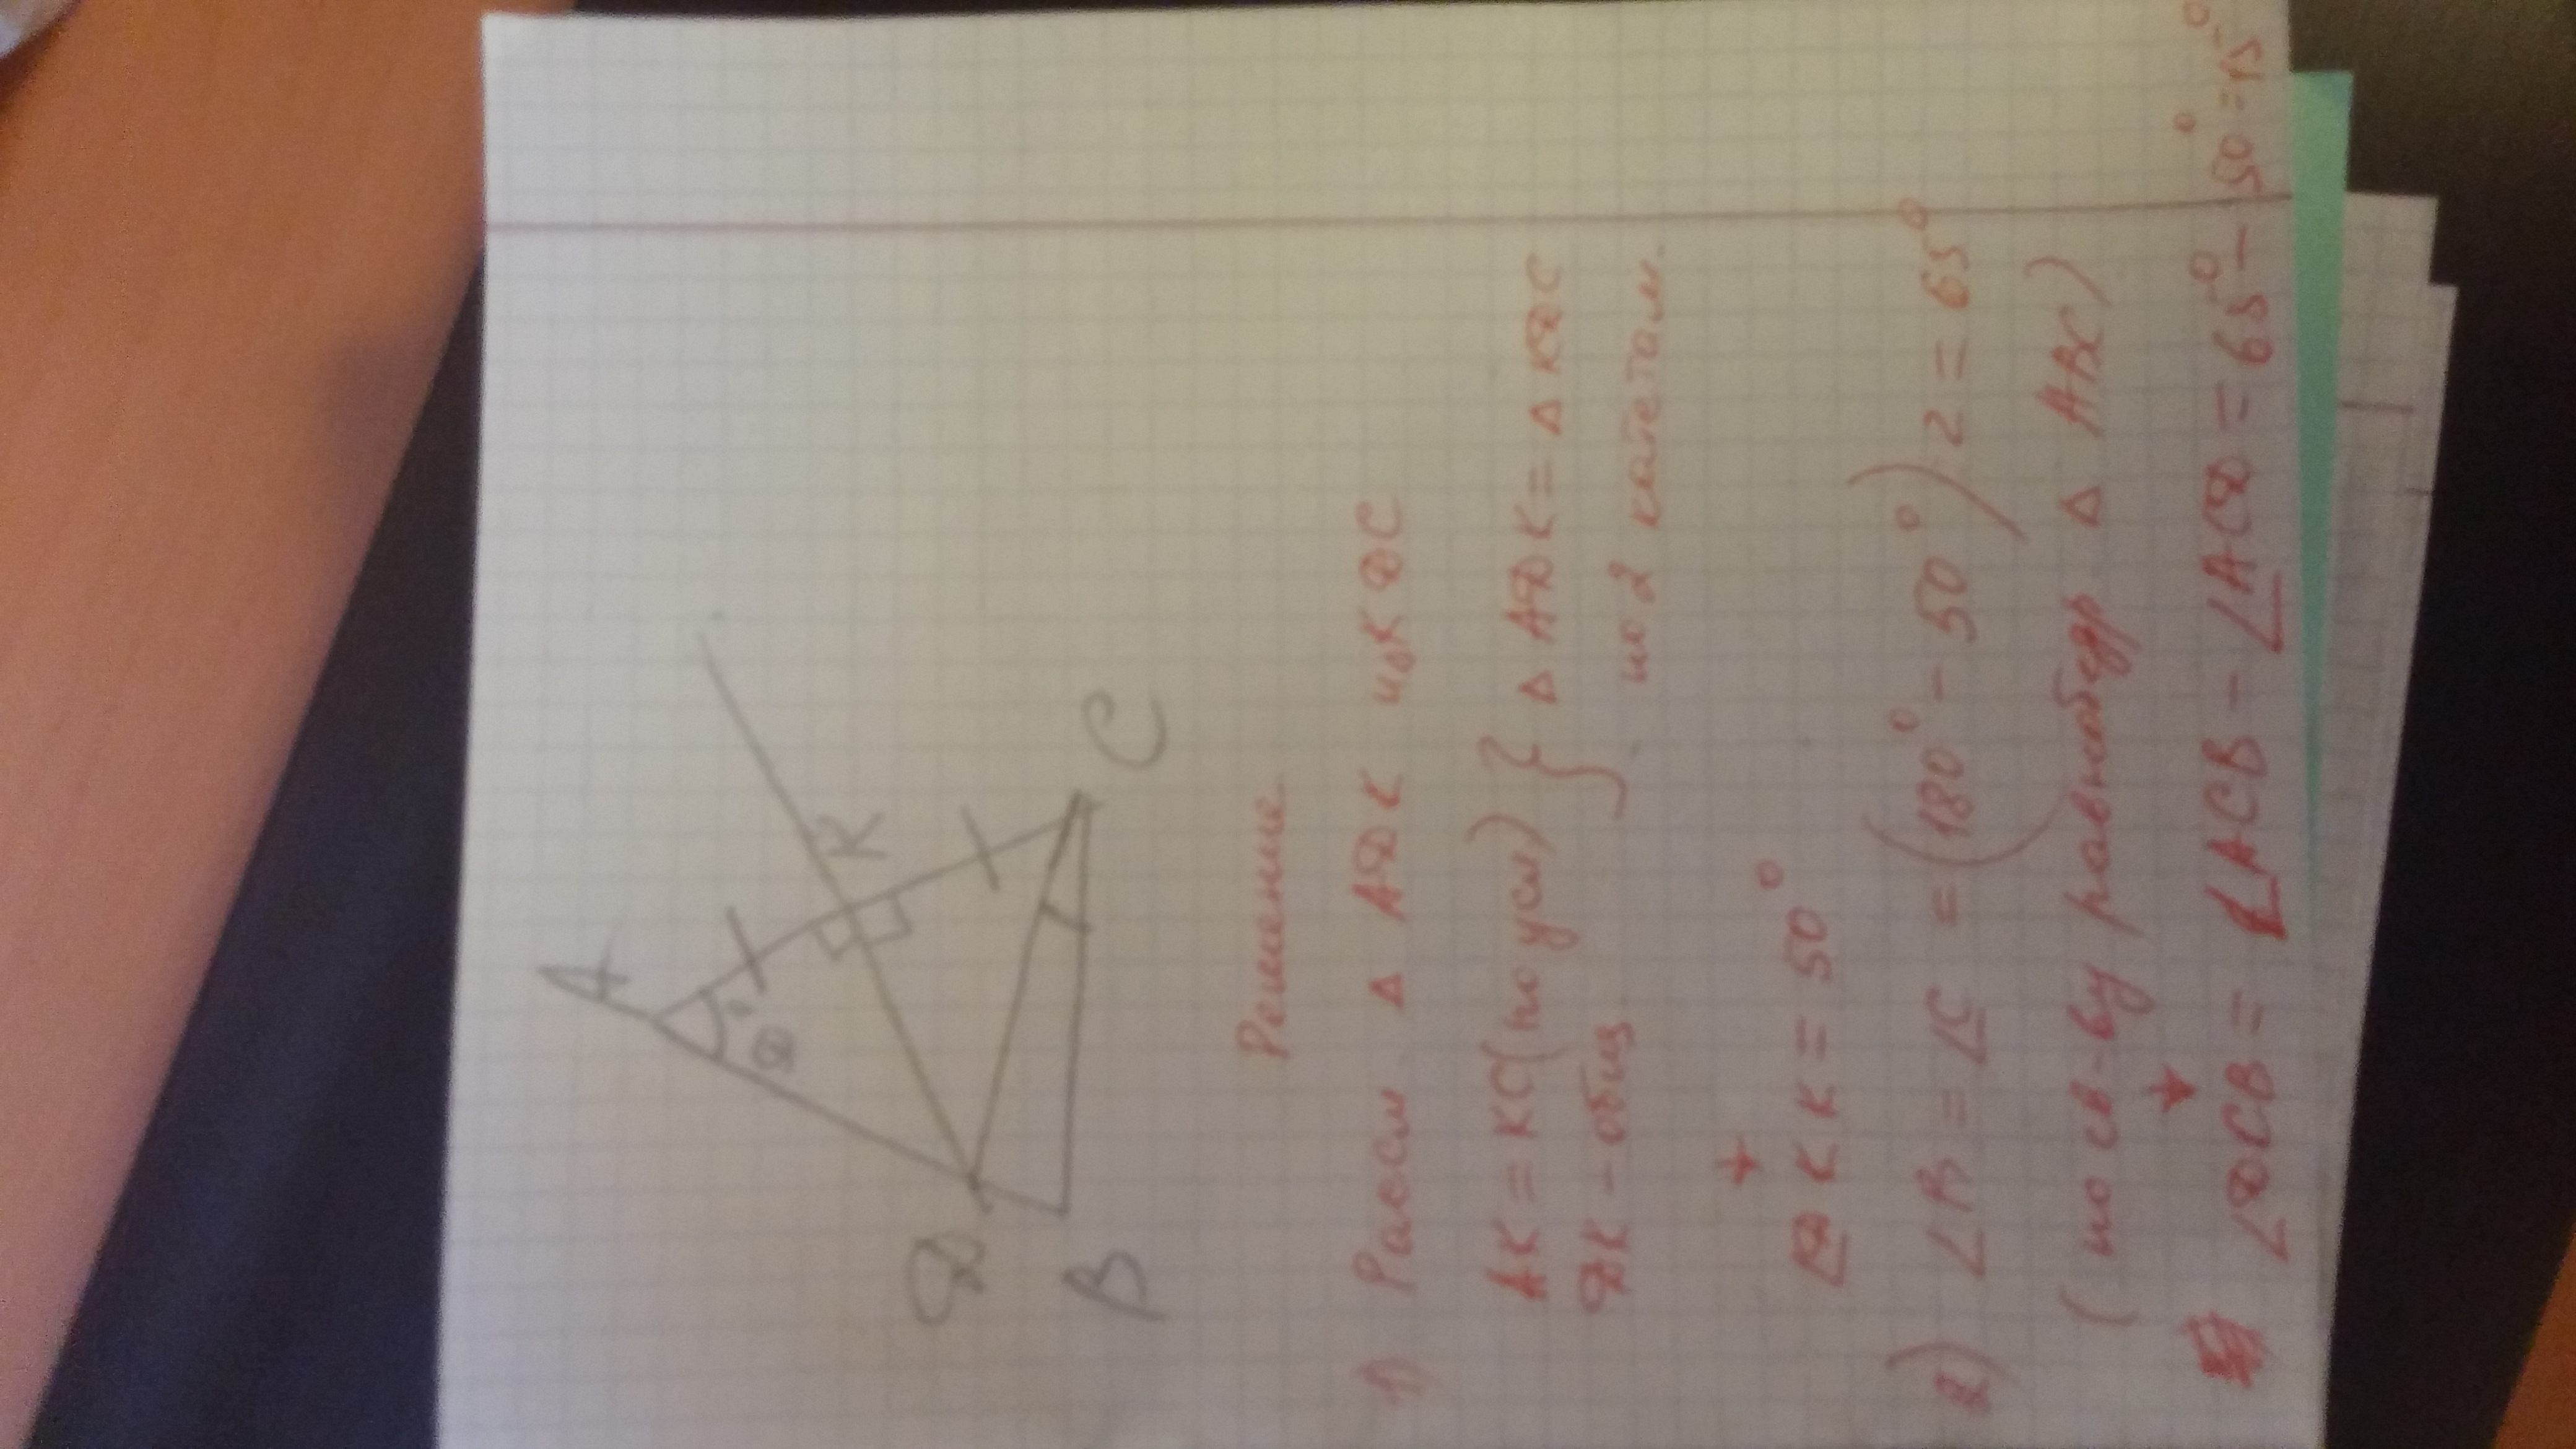 A
K
C
D
B
Решение
1) Рассм △ ADK и △KDC
AK = KC (по усл) } △ ADK = △ KDC
DK - общ по 2 катетам.
↓
∠DKK = 50°
2) ∠B = ∠C = (180° - 50°) : 2 = 65°
(по св-ву равнобедр △ ABC)
↓
∠DCB = ∠ACB - ∠ACD = 65° - 50° = 15°